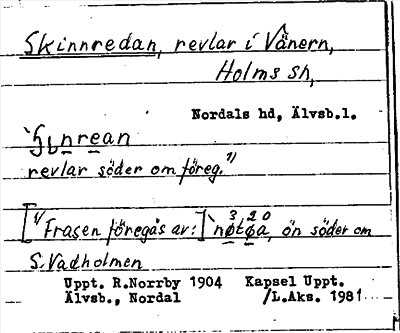 Skinnredan, revlar i Vänern,
Holms sn,
Nordals hd, Älvsb.l.
revlar söder om föreg. 1)
[1) Frasen föregås av:] `nøtøa, ön söder om
S. Vadholmen
Uppt. R.Norrby 1904 Kapsel Uppt.
Älvsb., Nordal /L.Aks. 1981